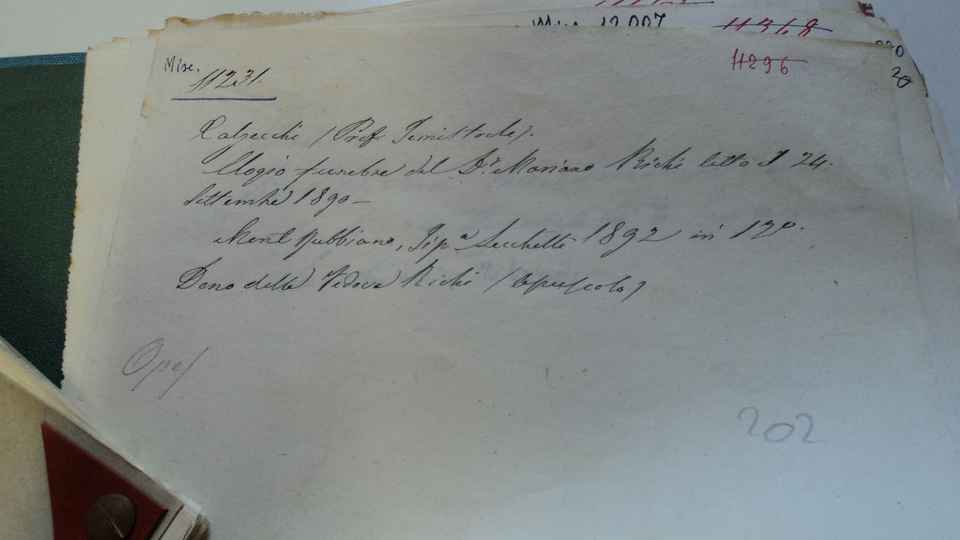 Misc. 12.007
11368
11296
20
Misc.
11231.
Calzecchi (Prof. Temistocle).
Elogio funebre del Dr. Mariano Richi letto il 24.
Settembre 1890 –
Mont Rubbiano, Tipa Lucchetti 1892 in 12º.
Dono della Vedova Richi (Opuscolo)
Opus
202